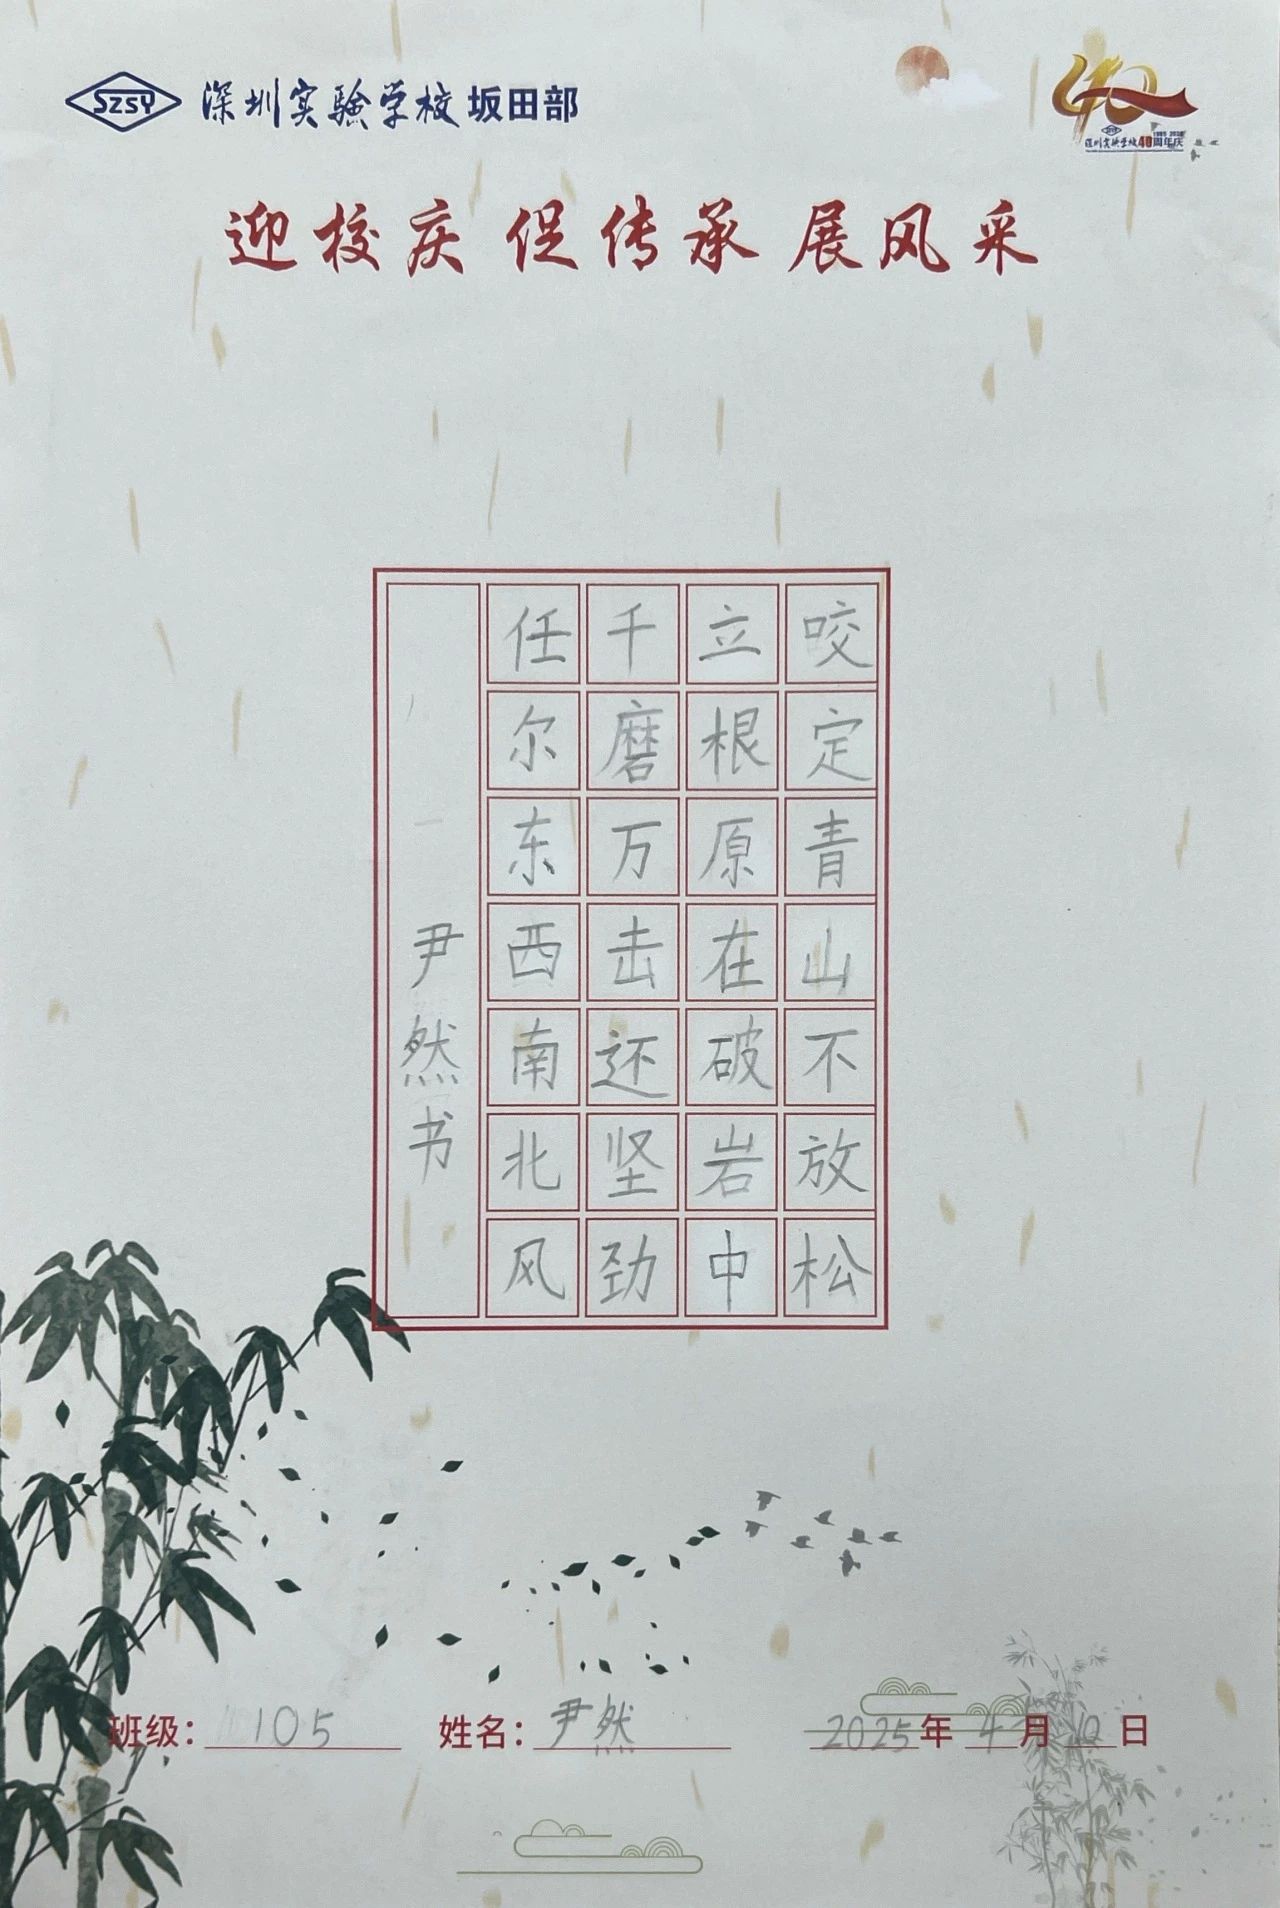 SZSY 深圳实验学校 坂田部
深圳实验学校40周年庆
迎校庆 促传承 展风采
咬定青山不放松
立根原在破岩中
千磨万击还坚劲
任尔东西南北风
尹然书
班级：105 姓名：尹然 2025年4月12日